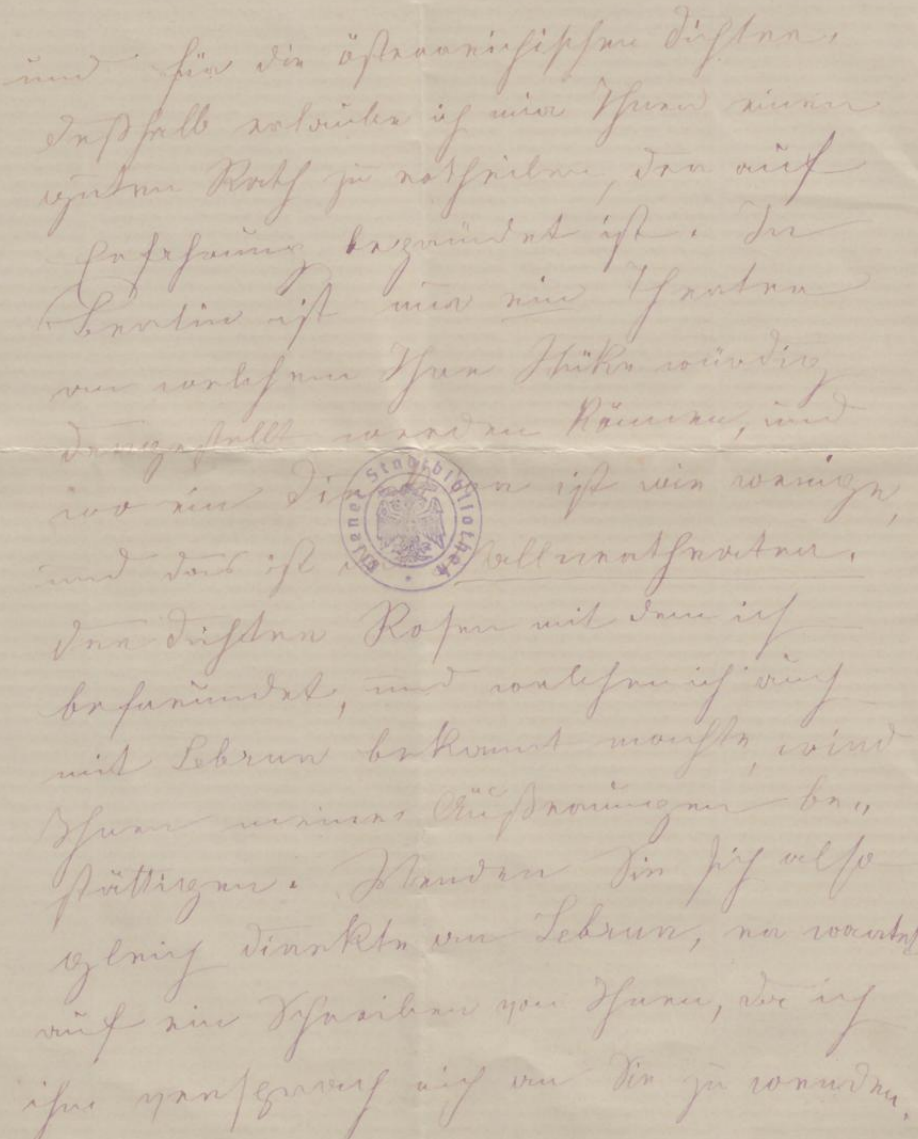 und für die österreichischen Dichter.
Deßhalb erlaube ich mir Ihnen einen
guten Rath zu ertheilen, der auf
Erfahrung begründet ist. In
Berlin ist nur ein Theater
an welchem Ihre Stüke würdig
dargestellt werden können, und
wo ein ist wie wenige,
und das ist Wallnertheater.
Der Dichter Rosen mit dem ich
befreundet, und welchen ich auch
mit Lebrun bekannt machte, wird
Ihnen meine Äußerungen be„
stättigen. Wenden Sie sich also
gleich direkte an Lebrun, er wartet
auf ein Schreiben von Ihnen, da ich
ihm versprach mich an Sie zu wenden.
Wiener Stadtbibliothek